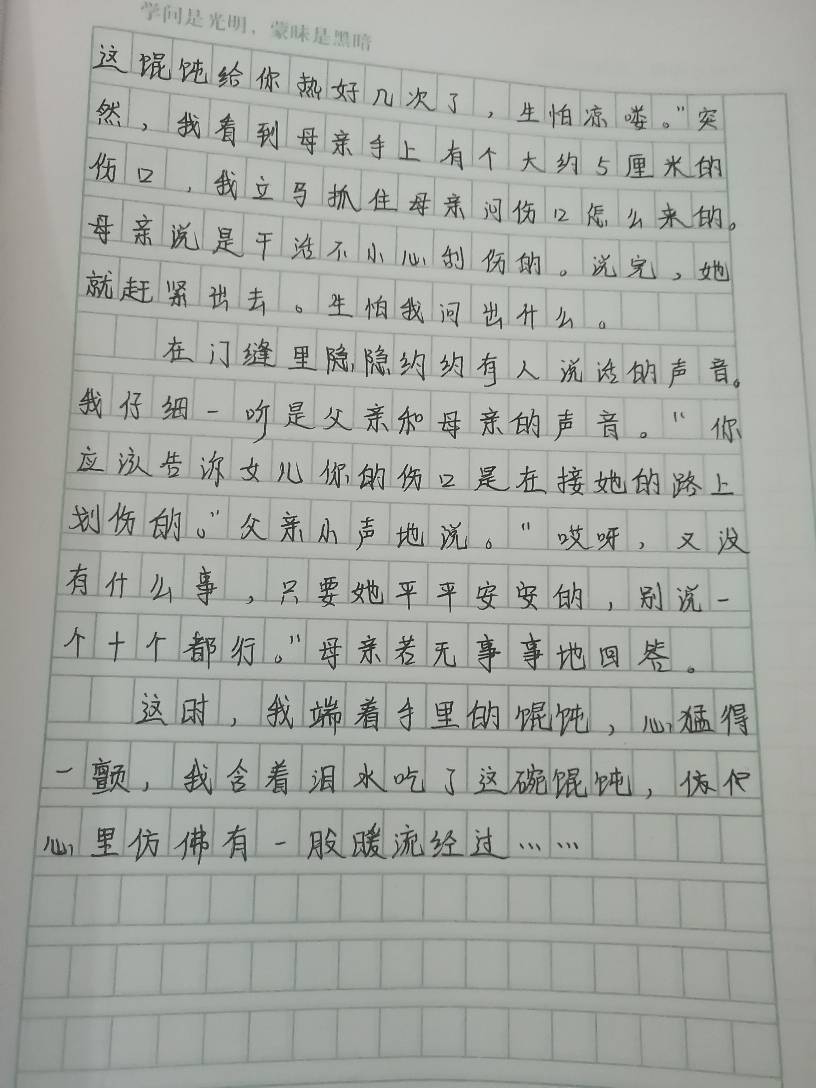 学问是光明，蒙昧是黑暗
这馄饨给你热好几次了，生怕凉喽。”突
然，我看到母亲手上有个大约5厘米的
伤口，我立马抓住母亲问伤口怎么来的。
母亲说是干活不小心刮伤的。说完，她
就赶紧出去。生怕我问出什么。
在门缝里隐隐约约有人说话的声音。
我仔细一听是父亲和母亲的声音。“你
应该告诉女儿你的伤口是在接她的路上
划伤的。”父亲小声地说。“哎呀，又没
有什么事，只要她平平安安的，别说一
个十个都行。”母亲若无事事地回答。
这时，我端着手里的馄饨，心猛得
一颤，我含着泪水吃了这碗馄饨，
心里仿佛有一股暖流经过……